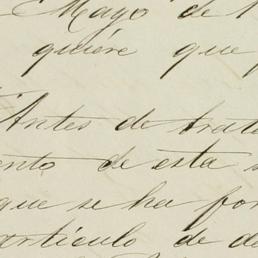 Mayo de
quiére que
Antes de trata
ento de esta s
que se ha for
artículo de de